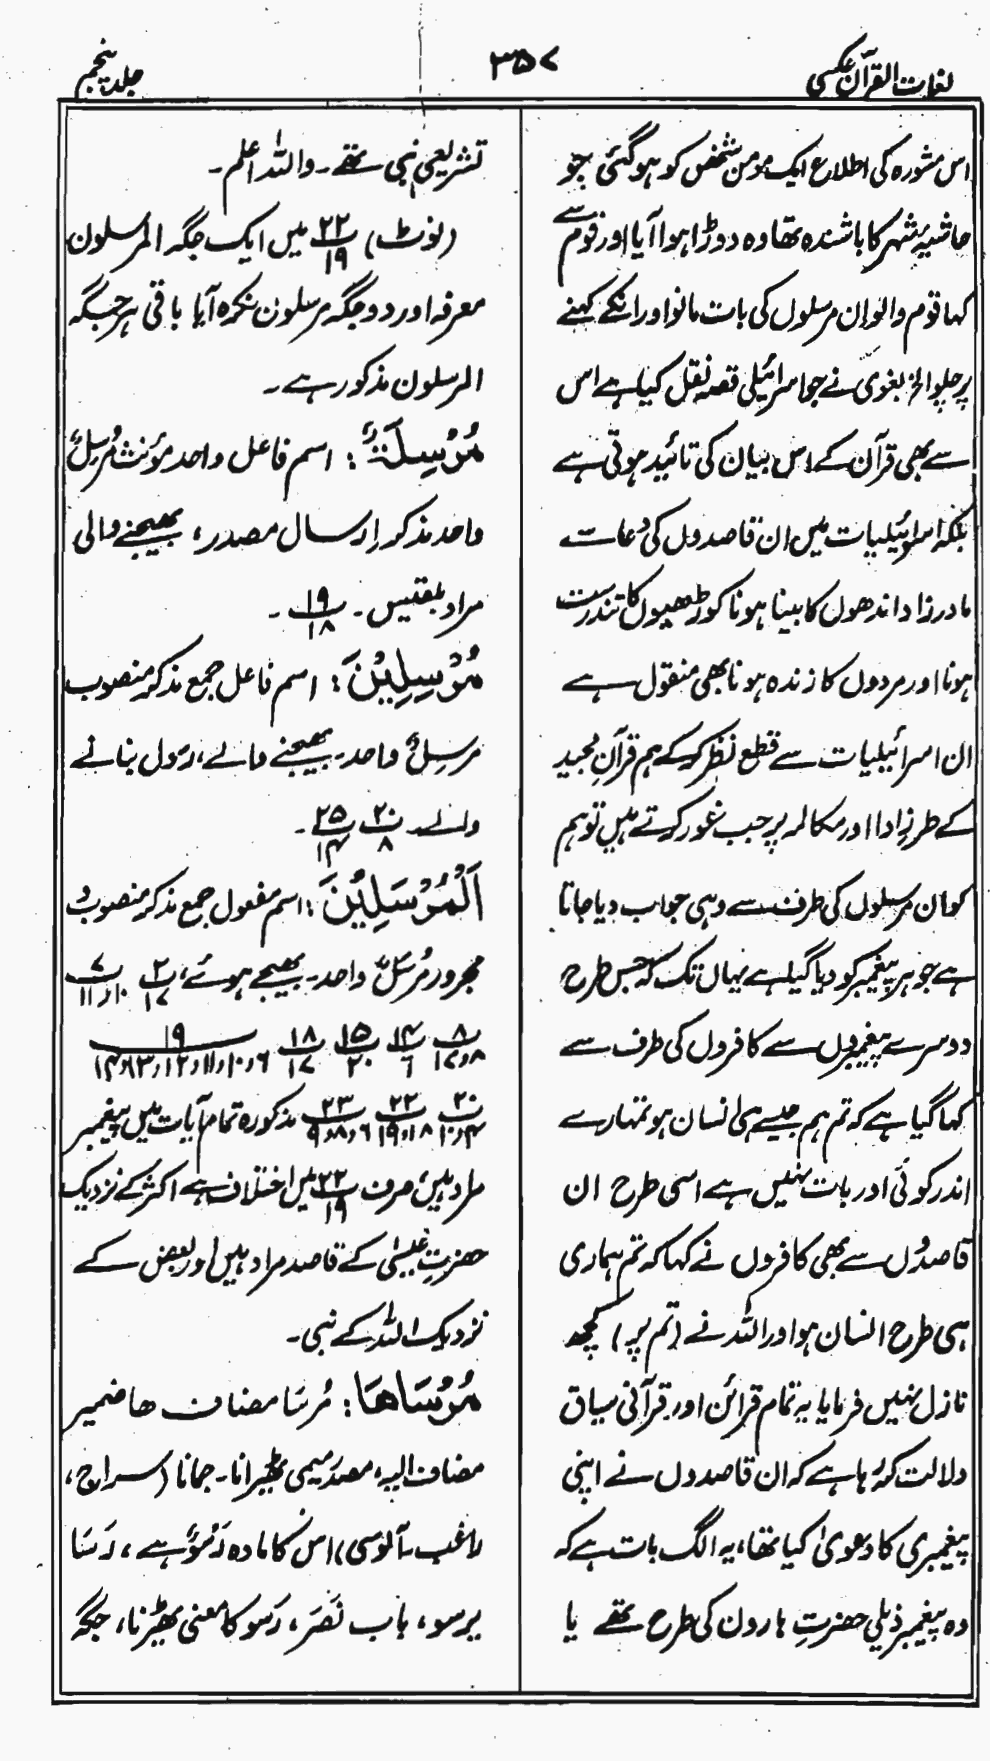 لغات القرآن عکسی
۳۵۷
جلد پنجم
اس مشورہ کی اطلاع ایک مومن شخص کو ہو گئی جو
حاشیۂ شہر کا باشندہ تھا وہ دوڑا ہوا آیا اور قوم سے
کہا قوم والو ان مرسلوں کی بات مانو اور انکے کہنے
پر چلو الخ بغوی نے جو اسرائیلی قصہ نقل کیا ہے اس
سے بھی قرآن کے اس بیان کی تائید ہوتی ہے
بلکہ اسرائیلیات میں ان قاصدوں کی دعا سے
مادر زاد اندھوں کا بینا ہونا کوڑھیوں کا تندرست
ہونا اور مردوں کا زندہ ہونا بھی منقول ہے
ان اسرائیلیات سے قطع نظر کر کے ہم قرآن مجید
کے طرز ادا اور مکالمہ پر جب غور کرتے ہیں تو ہم
کو ان مرسلوں کی طرف سے وہی جواب دیا جاتا
ہے جو ہر پیغمبر کو دیا گیا ہے یہاں تک کہ جس طرح
دوسرے پیغمبروں سے کافروں کی طرف سے
کہا گیا ہے کہ تم ہم جیسے ہی انسان ہو تمہارے
اندر کوئی اور بات نہیں ہے اسی طرح ان
قاصدوں سے بھی کافروں نے کہا کہ تم ہماری
ہی طرح انسان ہو اور اللہ نے (تم پر) کچھ
نازل نہیں فرمایا یہ تمام قرائن اور قرآنی سیاق
دلالت کر رہا ہے کہ ان قاصدوں نے اپنی
پیغمبری کا دعویٰ کیا تھا، یہ الگ بات ہے کہ
وہ پیغمبر ذیلی حضرتِ ہارون کی طرح تھے یا
تشریعی نبی تھے۔ واللہ اعلم۔
(نوٹ) ۲۲/۱۹ میں ایک جگہ المرسلون
معرفہ اور دو جگہ مرسلون نکرہ آیا باقی ہر جگہ
المرسلون مذکور ہے۔
مُرْسِلَةٌ: اسم فاعل واحد مؤنث مُرسِلٌ
واحد مذکر اِرسال مصدر، بھیجنے والی
مراد بلقیس۔ ۱۹/۱۸۔
مُرْسِلِيْنَ: اسم فاعل جمع مذکر منصوب
مرسِلٌ واحد۔ بھیجنے والے، رسول بنانے
والے۔ ۲۰/۸ ۲۵/۱۴۔
اَلْمُرْسَلِيْنَ: اسم مفعول جمع مذکر منصوب و
مجرور مُرسَلٌ واحد۔ بھیجے ہوئے، ۲/۱۷ ۷/۱۰ و ۱۱
۸/۸ و ۱۷ ۱۴/۶ ۱۵/۲۰ ۱۸/۱۷ ۱۹/۶ و ۱۰ و ۱۱ و ۱۲ و ۱۳ و ۱۴
۲۰/۴ و ۱۰ ۲۲/۱۸ و ۱۹ ۲۳/۶ و ۸ و ۹ مذکورہ تمام آیات میں پیغمبر
مراد ہیں، صرف ۲۲/۱۹ میں اختلاف ہے اکثر کے نزدیک
حضرتِ عیسیٰ کے قاصد مراد ہیں اور بعض کے
نزدیک اللہ کے نبی۔
مُرْسَاهَا: مُرسَا مضاف ھا ضمیر
مضاف الیہ، مصدر میمی ٹھیرانا۔ جمانا (سراج،
راغب۔ آلوسی) اس کا مادہ رَسْوٌ ہے، رَسَا
یرسو، باب نَصَرَ، رَسو کا معنی ٹھیرنا، جگہ